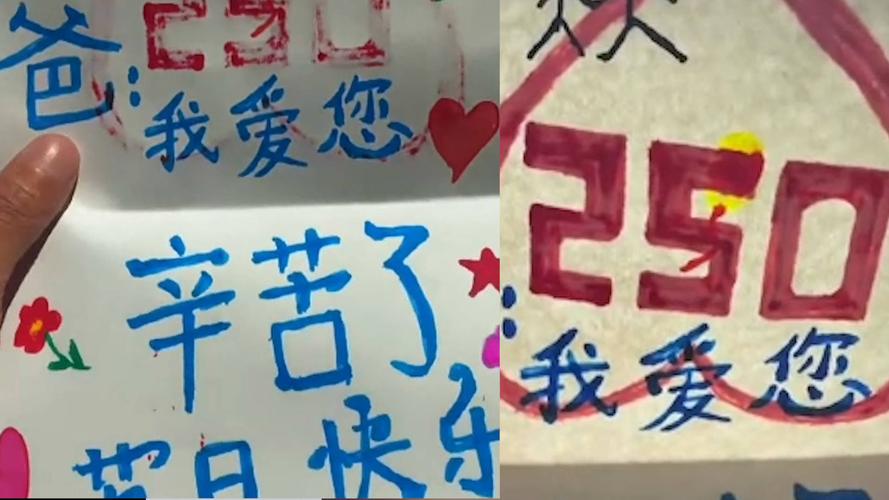 250
爸:
我爱您
辛苦了
节日快乐
250
我爱您